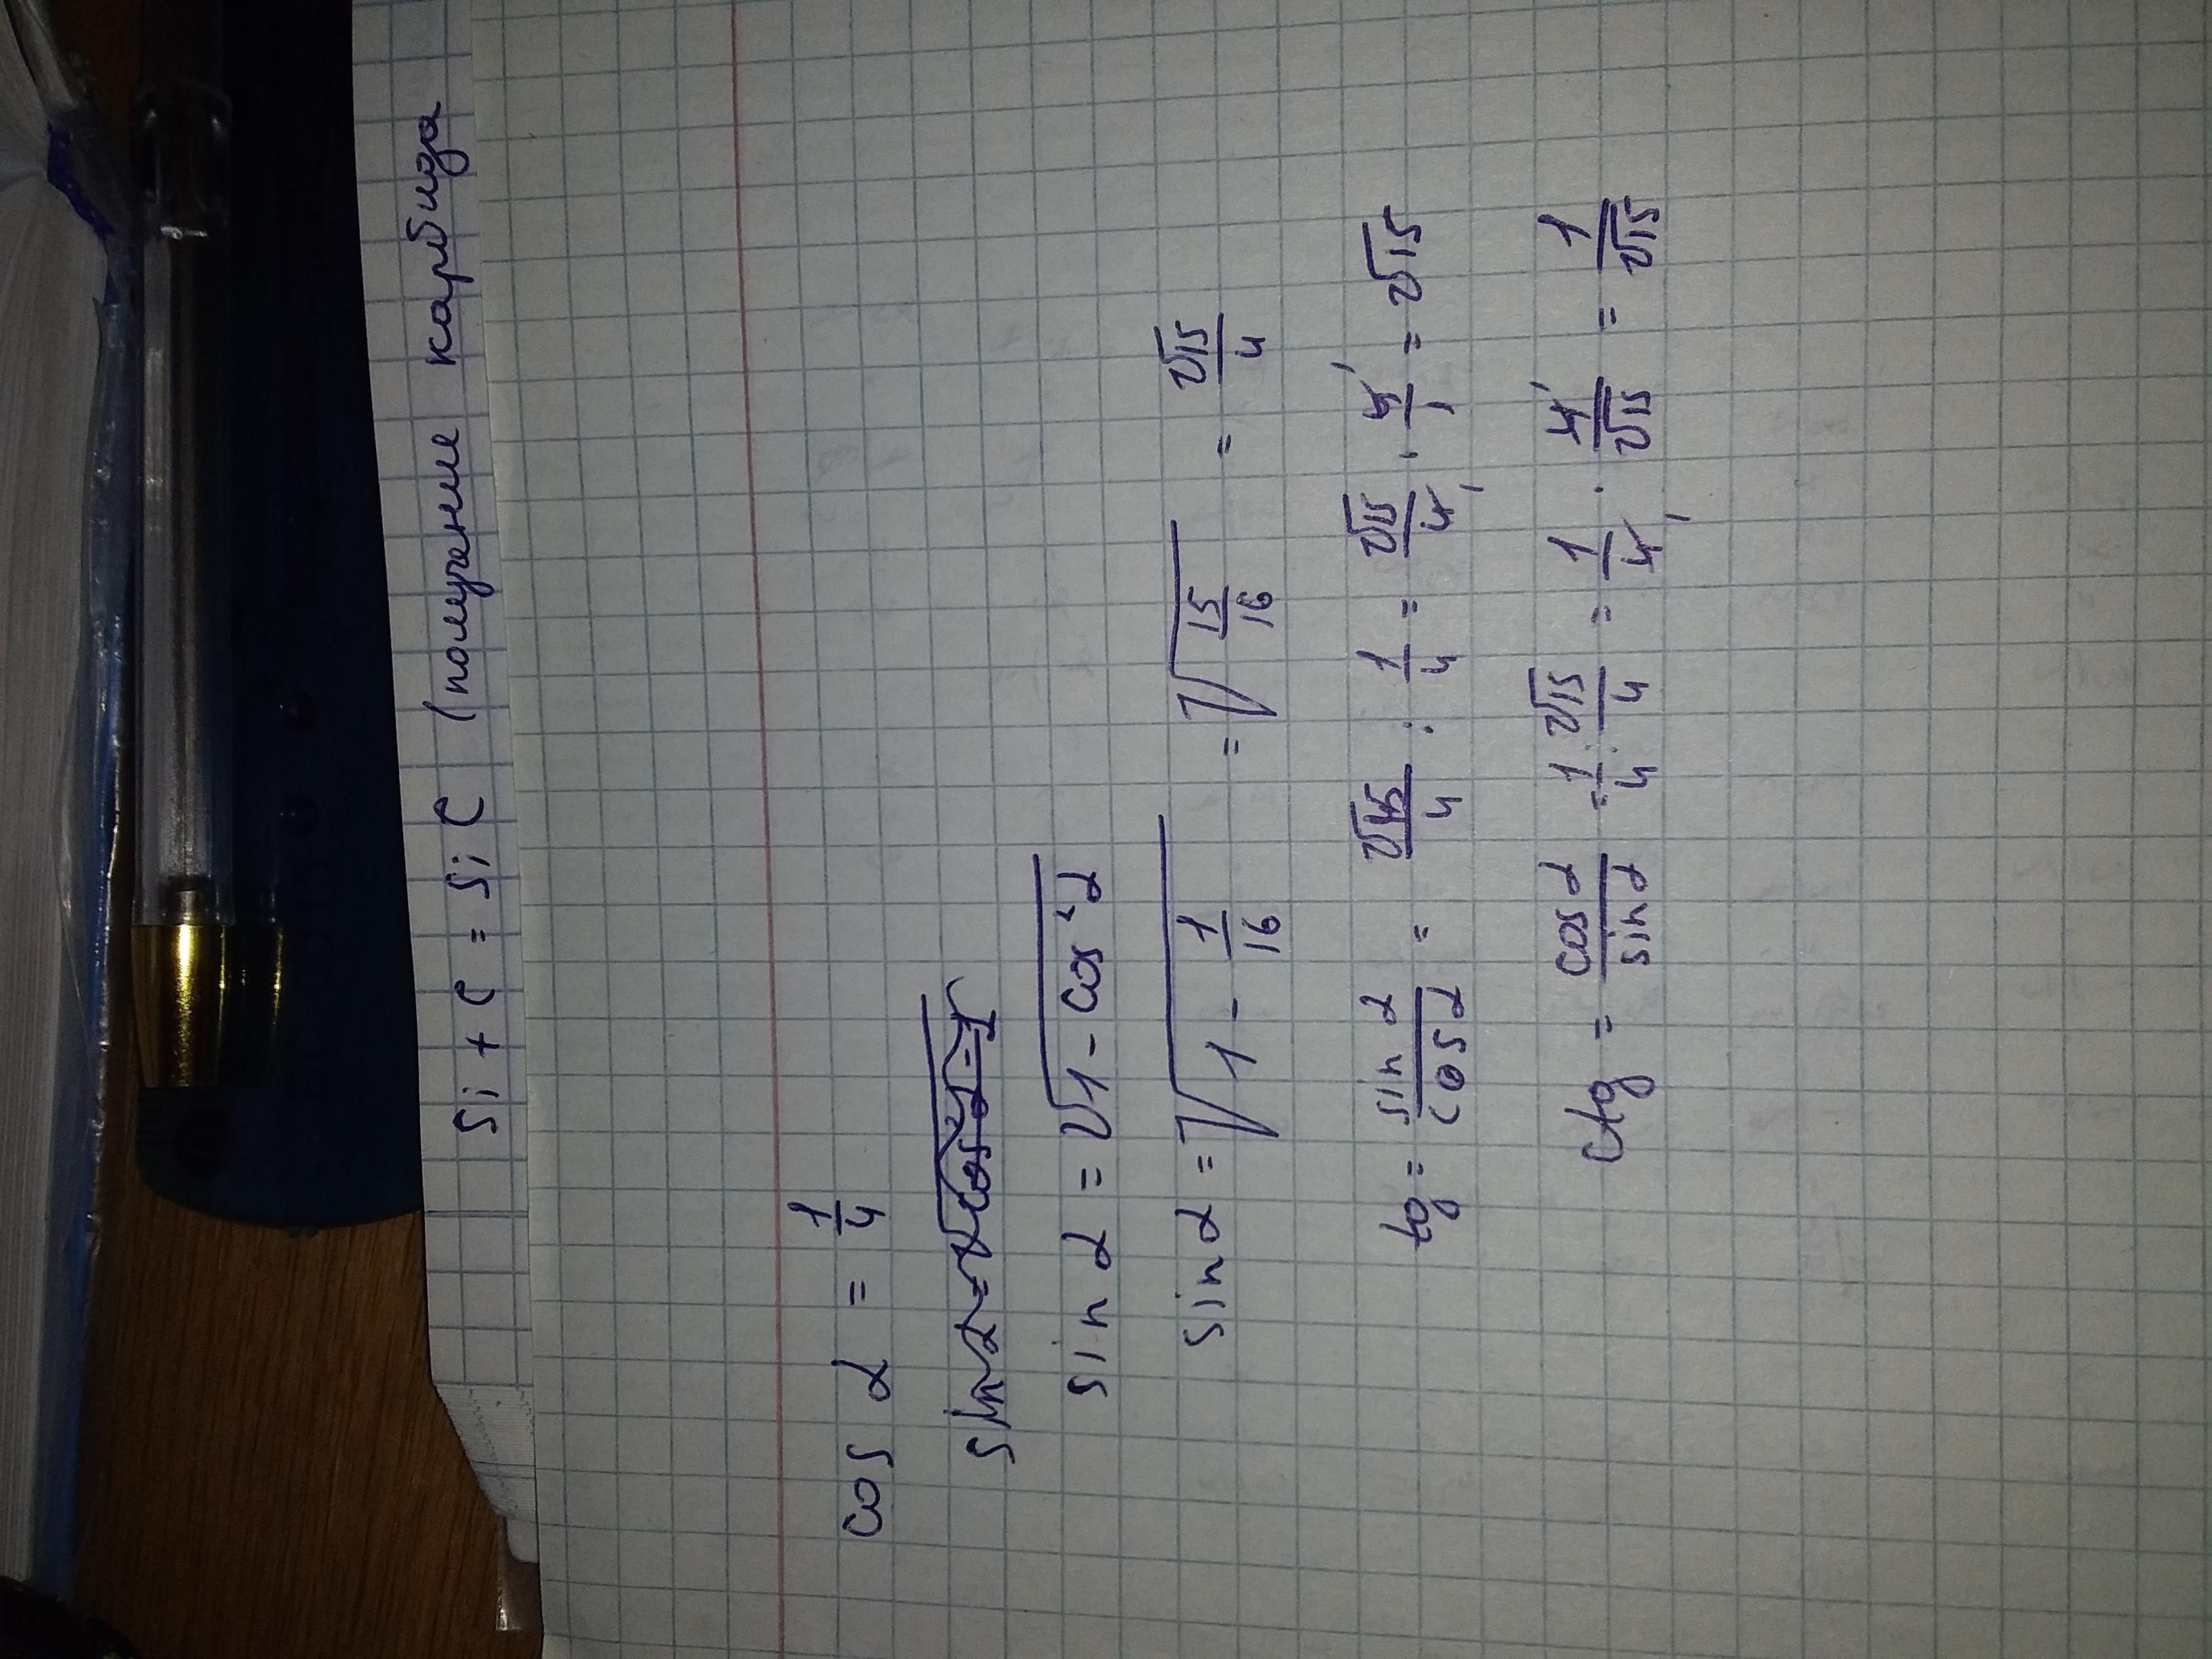 Si + C = SiC (получение карбида
cos α = 1/4
sin α = √(1 - cos²α)
sin α = √(1 - 1/16) = √(15/16) = √15/4
tg = sin α/cos α = √15/4 : 1/4 = √15/4 · 4/1 = √15
ctg = cos α/sin α = 1/4 : √15/4 = 1/4 · 4/√15 = 1/√15